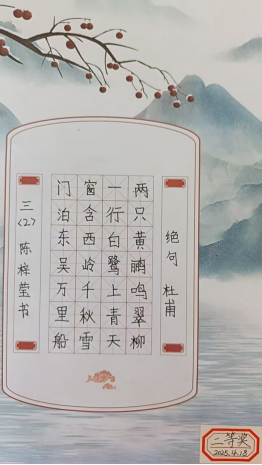 绝句 杜甫
两只黄鹂鸣翠柳
一行白鹭上青天
窗含西岭千秋雪
门泊东吴万里船
三(2) 陈梓莹书
二等奖
2025.4.18